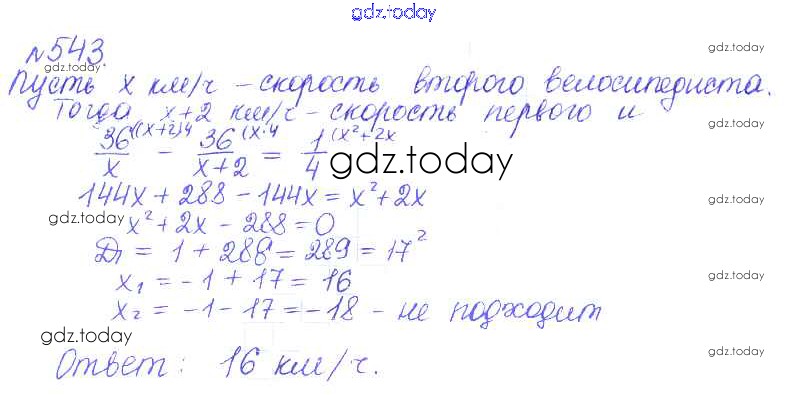 gdz.today
№543.
gdz.today
Пусть x км/ч - скорость второго велосипедиста.
Тогда x+2 км/ч - скорость первого и
gdz.today
36/x - 36/(x+2) = 1/4
gdz.today
144x + 288 - 144x = x² + 2x
gdz.today gdz.today
x² + 2x - 288 = 0
D₁ = 1 + 288 = 289 = 17²
x₁ = -1 + 17 = 16
gdz.today
x₂ = -1 - 17 = -18 - не подходит
gdz.today
Ответ: 16 км/ч.
gdz.today